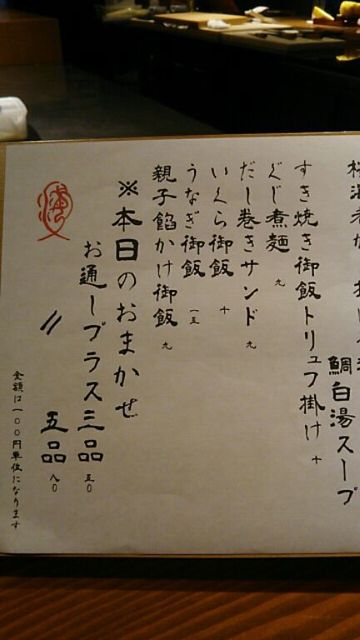 鯛白湯スープ
すき焼き御飯トリュフ掛け 十
ぐじ煮麺 九
だし巻きサンド 九
いくら御飯 十
うなぎ御飯 一五
親子餡かけ御飯 九
※本日のおまかせ
お通しプラス三品 五〇
〃 五品 八〇
金額は一〇〇円単位になります